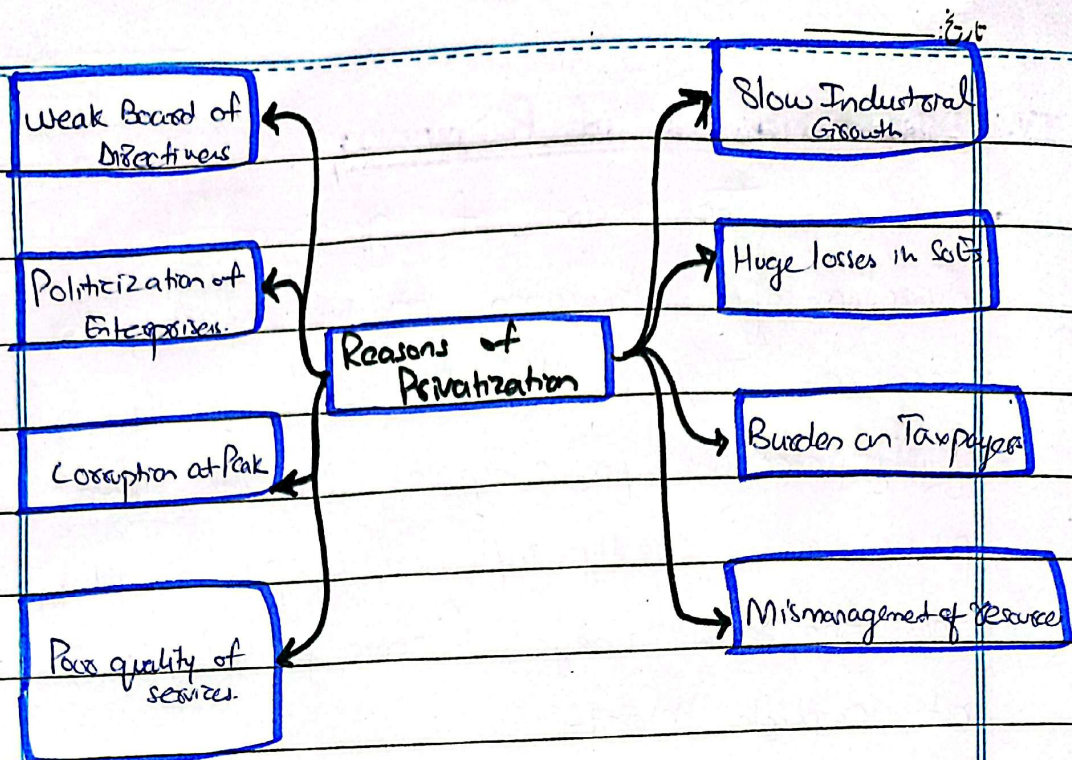 تاریخ:
Weak Board of
Directiners
Politicization of
Enterprisers.
Corruption at Peak
Poor quality of
services.
Reasons of
Privatization
Slow Industoral
Growth
Huge losses in SoEs
Burden on Taxpayers
Mismanagement of resource